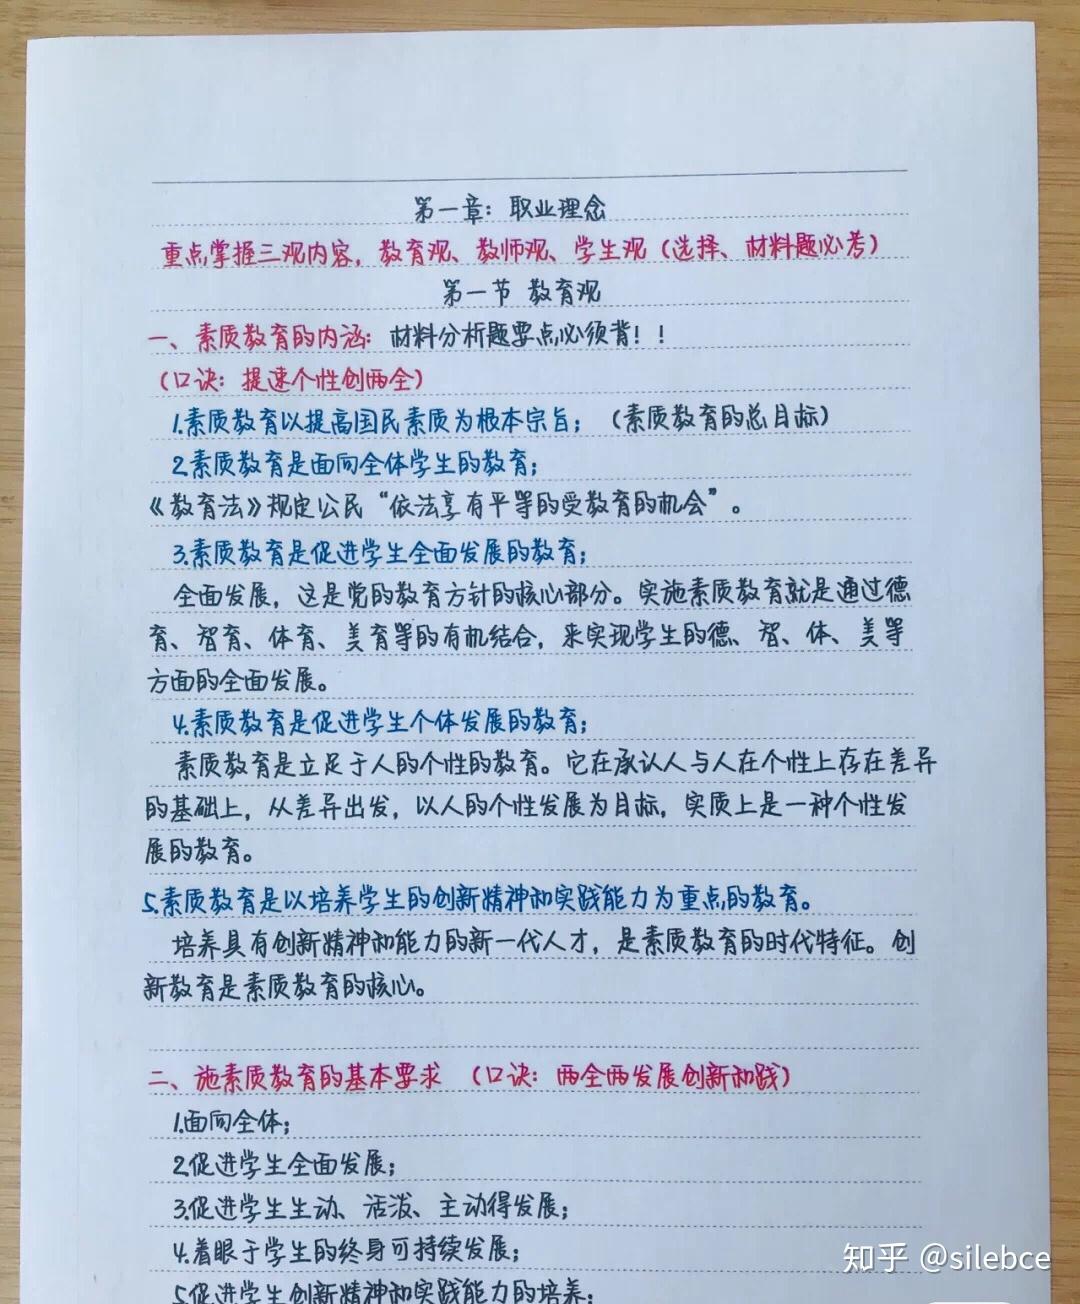 第一章：职业理念
重点掌握三观内容，教育观、教师观、学生观（选择、材料题必考）
第一节 教育观
一、素质教育的内涵：材料分析题要点必须背！！
（口诀：提速个性创两全）
1.素质教育以提高国民素质为根本宗旨；（素质教育的总目标）
2.素质教育是面向全体学生的教育；
《教育法》规定公民“依法享有平等的受教育的机会”。
3.素质教育是促进学生全面发展的教育；
全面发展，这是党的教育方针的核心部分。实施素质教育就是通过德
育、智育、体育、美育等的有机结合，来实现学生的德、智、体、美等
方面的全面发展。
4.素质教育是促进学生个体发展的教育；
素质教育是立足于人的个性的教育。它在承认人与人在个性上存在差异
的基础上，从差异出发，以人的个性发展为目标，实质上是一种个性发
展的教育。
5.素质教育是以培养学生的创新精神和实践能力为重点的教育。
培养具有创新精神和能力的新一代人才，是素质教育的时代特征。创
新教育是素质教育的核心。
二、施素质教育的基本要求 （口诀：两全两发展创新和践）
1.面向全体；
2.促进学生全面发展；
3.促进学生生动、活泼、主动得发展；
4.着眼于学生的终身可持续发展；
5.促进学生创新精神和实践能力的培养；
知乎 @silebce